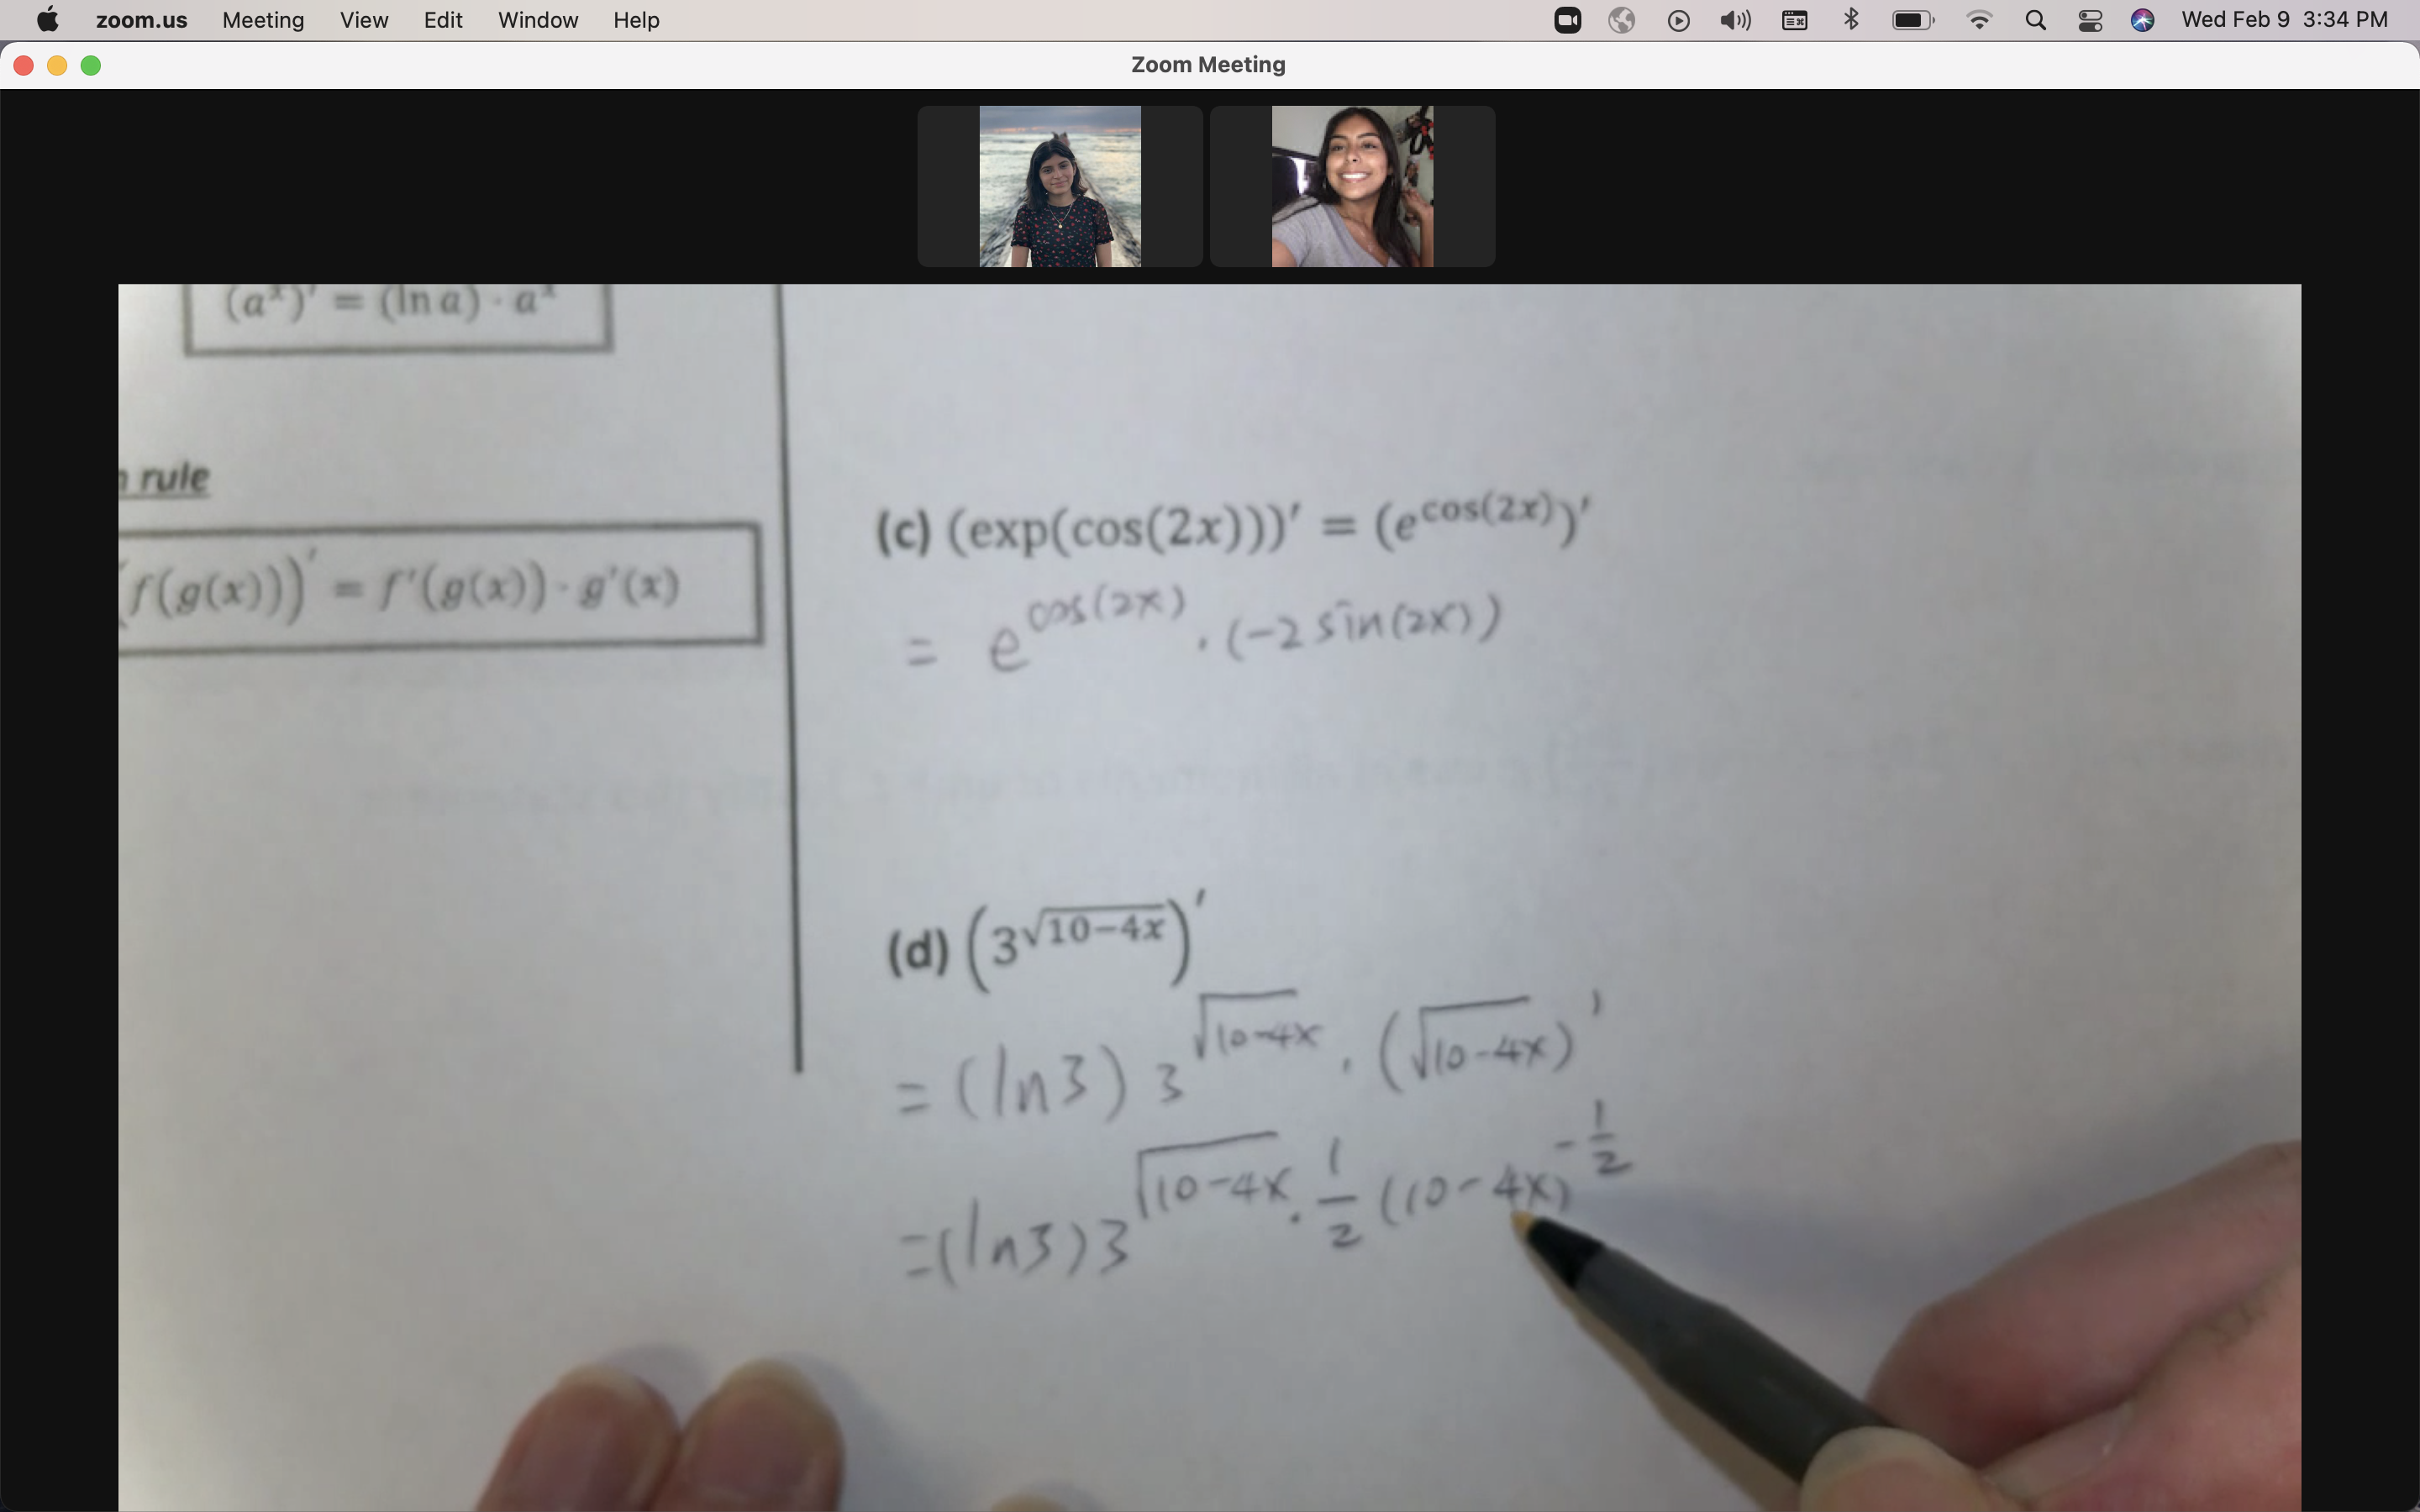 zoom.us Meeting View Edit Window Help Wed Feb 9 3:34 PM
Zoom Meeting
(aˣ)' = (ln a) · aˣ
rule
f(g(x)))' = f'(g(x)) · g'(x)
(c) (exp(cos(2x)))' = (e^cos(2x))'
= e^cos(2x) · (-2 sin(2x))
(d) (3^√(10-4x))'
= (ln3) 3^√(10-4x) · (√(10-4x))'
= (ln3) 3^√(10-4x) · 1/2 (10-4x)^-1/2